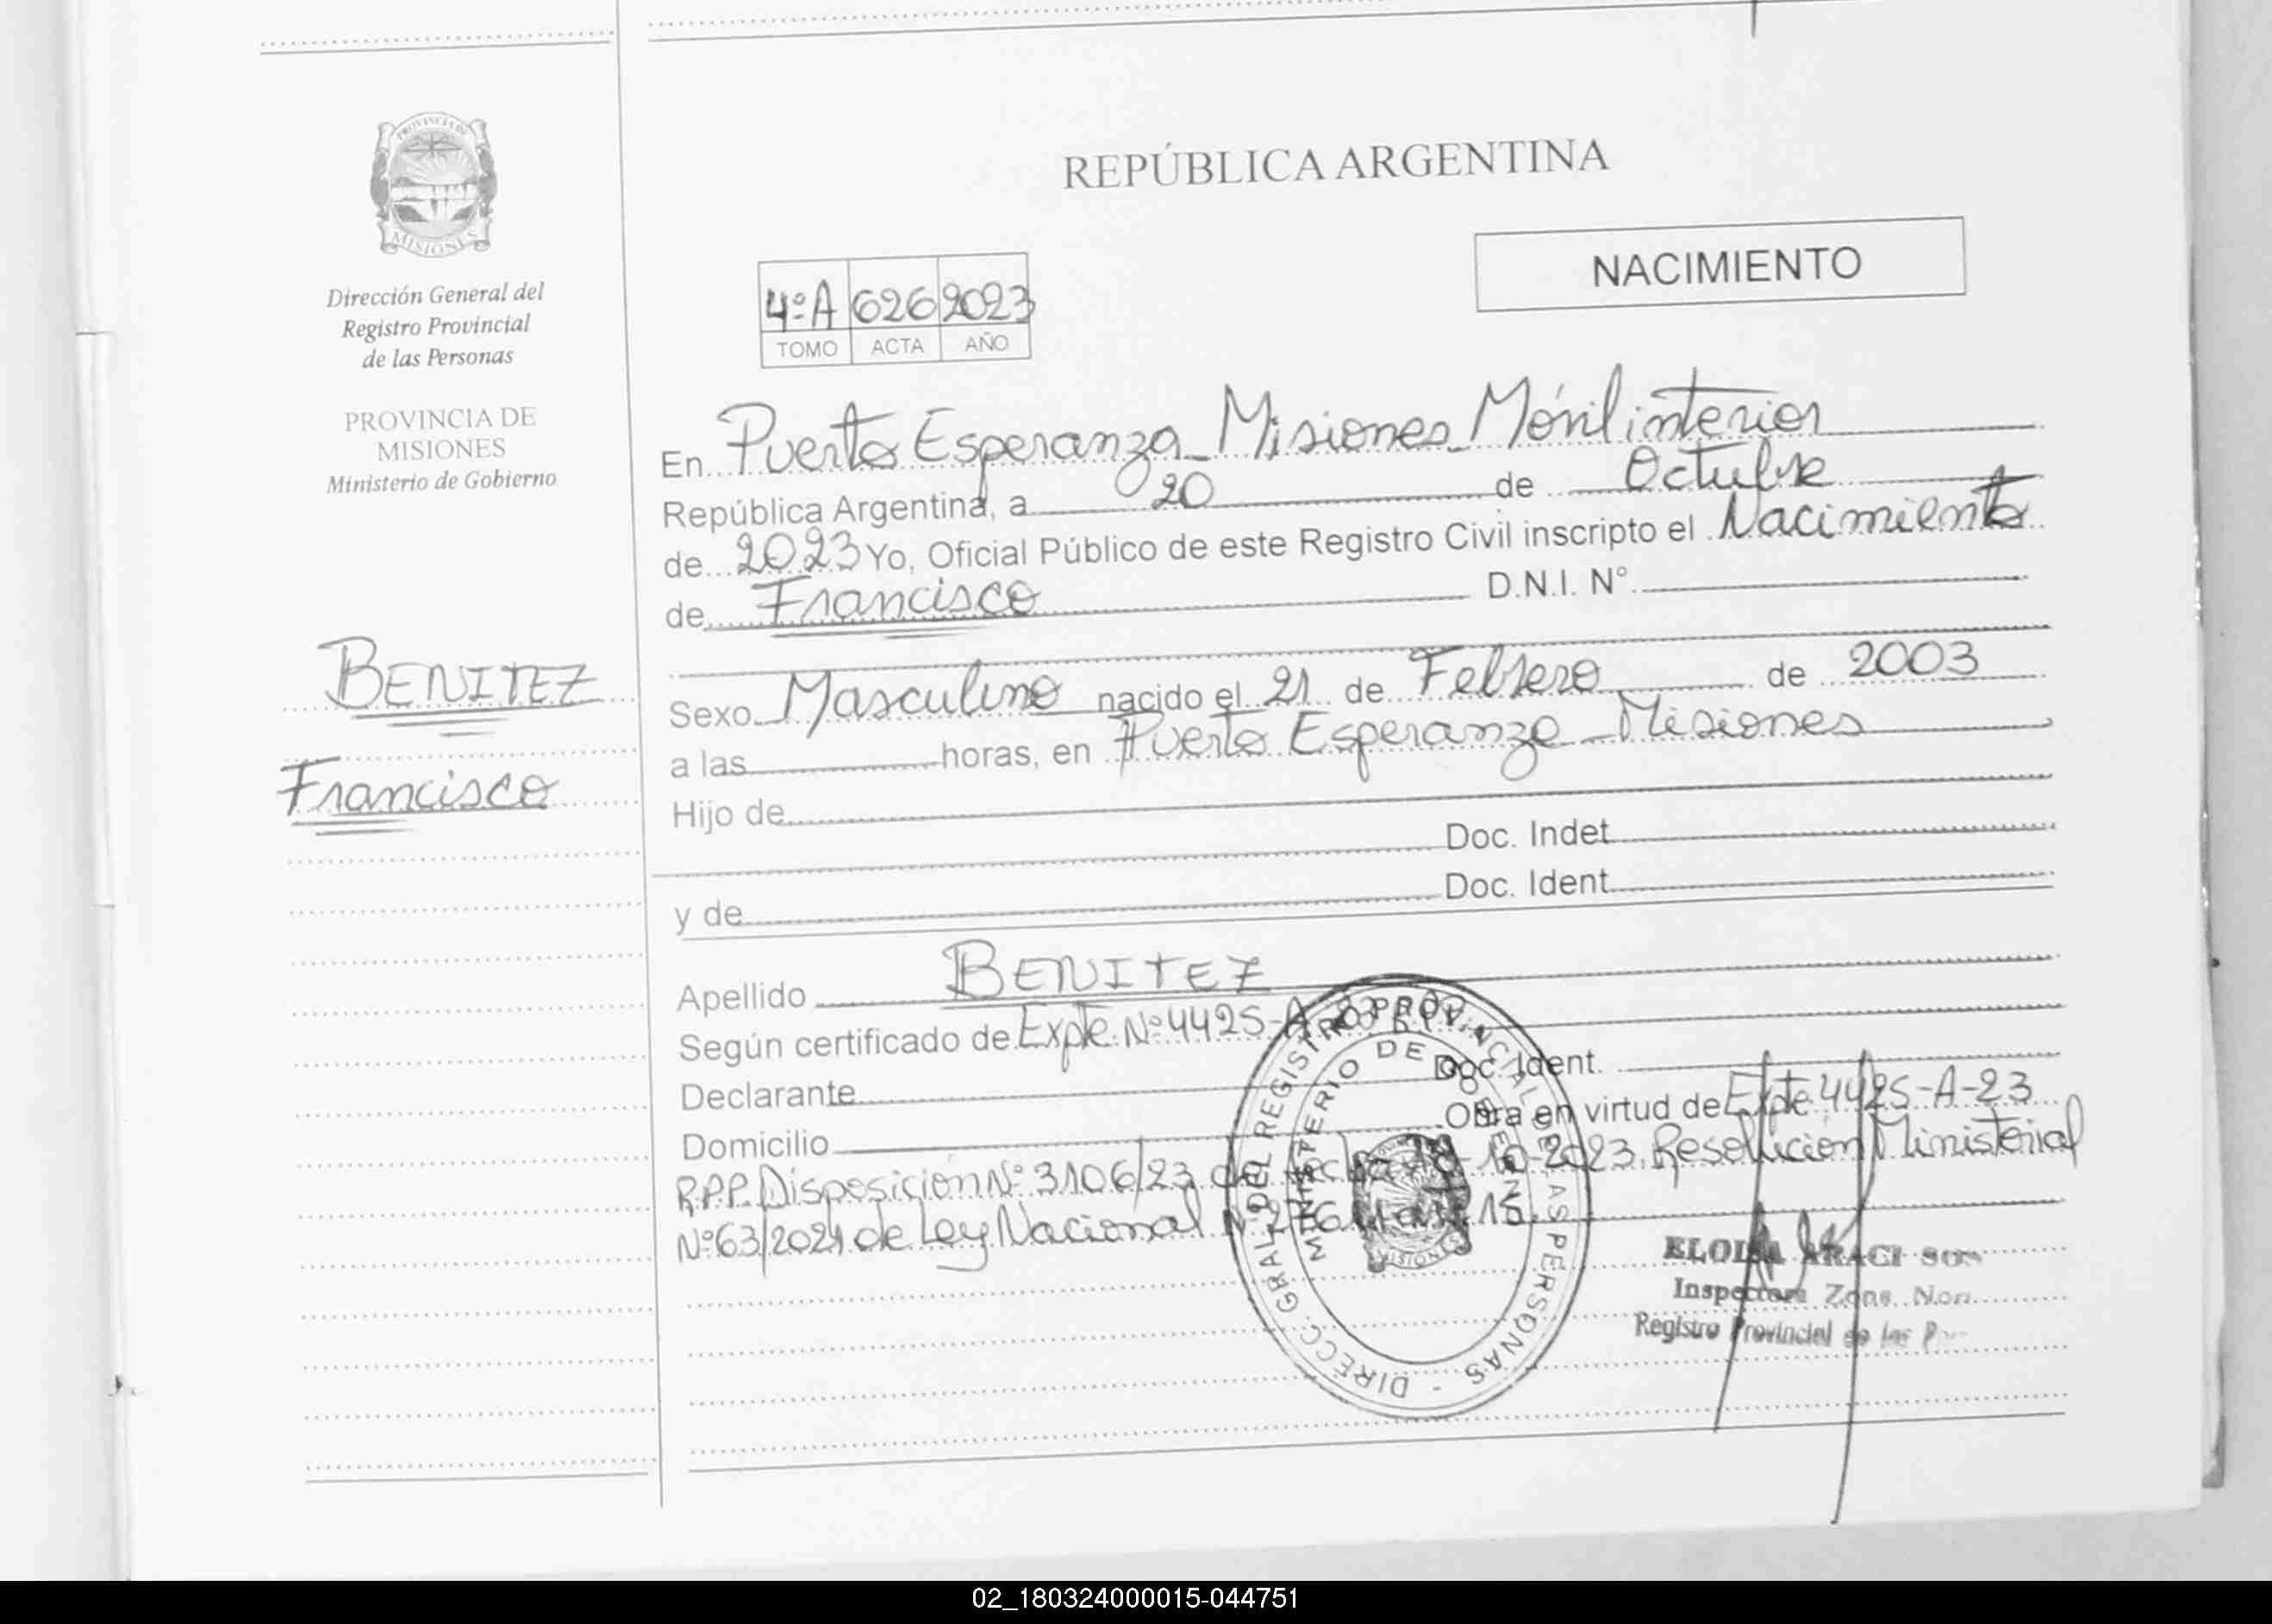 PROVINCIA DE
MISIONES
Dirección General del
Registro Provincial
de las Personas
PROVINCIA DE
MISIONES
Ministerio de Gobierno
BENITEZ
Francisco
REPÚBLICA ARGENTINA
NACIMIENTO
4ºA 626 2023
TOMO ACTA AÑO
En Puerto Esperanza Misiones Móvil interior
República Argentina, a 20 de Octubre
de 2023 Yo, Oficial Público de este Registro Civil inscripto el Nacimiento
de Francisco D.N.I. N°
Sexo Masculino nacido el 21 de Febrero de 2003
a las horas, en Puerto Esperanza Misiones
Hijo de
Doc. Indet
y de Doc. Ident
Apellido BENITEZ
Según certificado de Expte Nº 4425-A-23
Declarante Doc. Ident.
Domicilio Obra en virtud de Expte 4425-A-23
R.P.P. Disposición Nº 3106/23 de fecha 10-2023. Resolución Ministerial
Nº 63/2021 de Ley Nacional 15
DIRECC. GRAL. DEL REGISTRO PROVINCIAL DE LAS PERSONAS -
MINISTERIO DE GOBIERNO
MISIONES
ELOISA ARACI
Inspectora Zona
Registro Provincial de las
02_180324000015-044751